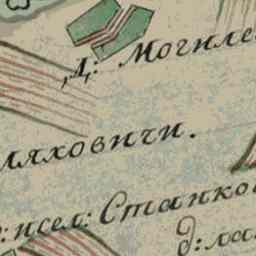 Д: Могиле
ляховичи.
: нсел: Станков
д: ла